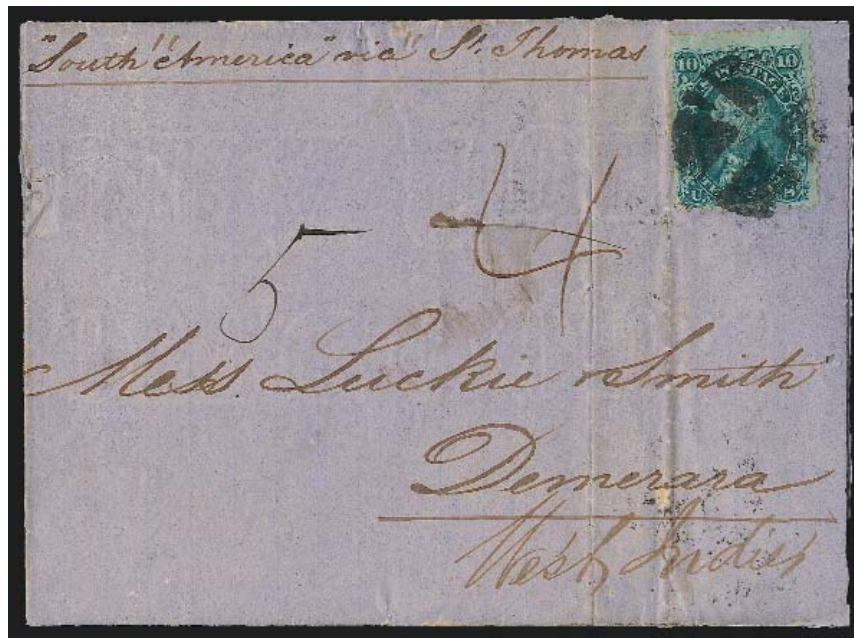 "South" America" via" St. Thomas
10 10
U S
5 4
Mess Luckie & Smith
Demerara
West Indies